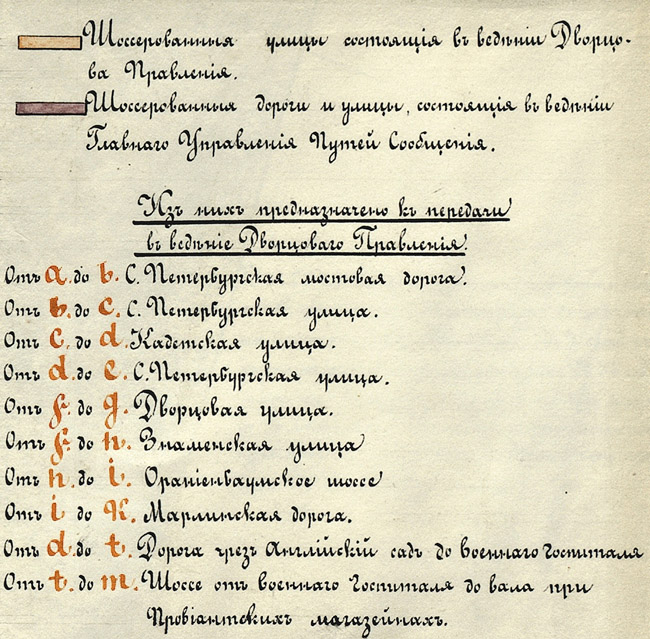 Шоссерованныя улицы состоящія въ ведѣніи Дворцо-
ва Правленія.
Шоссерованныя дороги и улицы, состоящія въ ведѣніи
Главнаго Управленія Путей Сообщенія.
Изъ нихъ предназначено къ передачи
въ ведѣніе Дворцоваго Правленія.
Отъ a. до b. С. Петербургская мостовая дорога.
Отъ b. до c. С. Петербургская улица.
Отъ c. до d. Кадетская улица.
Отъ d. до e. С. Петербургская улица.
Отъ f. до g. Дворцовая улица.
Отъ f. до h. Знаменская улица
Отъ h до i. Ораніенбаумское шоссе
Отъ i до K. Марлинская дорога.
Отъ d. до t. Дорога чрезъ Англійскій садъ до военнаго госпиталя
Отъ t. до m. Шоссе отъ военнаго госпиталя до вала при
Провіантскихъ магазейнахъ.